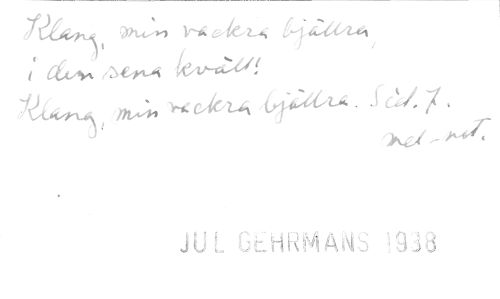 Klang, min vackra bjällra,
i den sena kväll!
Klang, min vackra bjällra. Sid. 7.
mel-not.
JUL GEHRMANS 1938